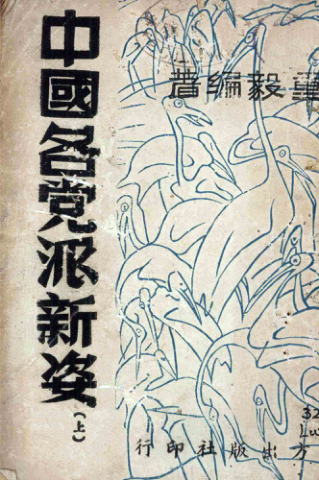 中國各党派新姿
(上)
著編毅
行印社版出方
32